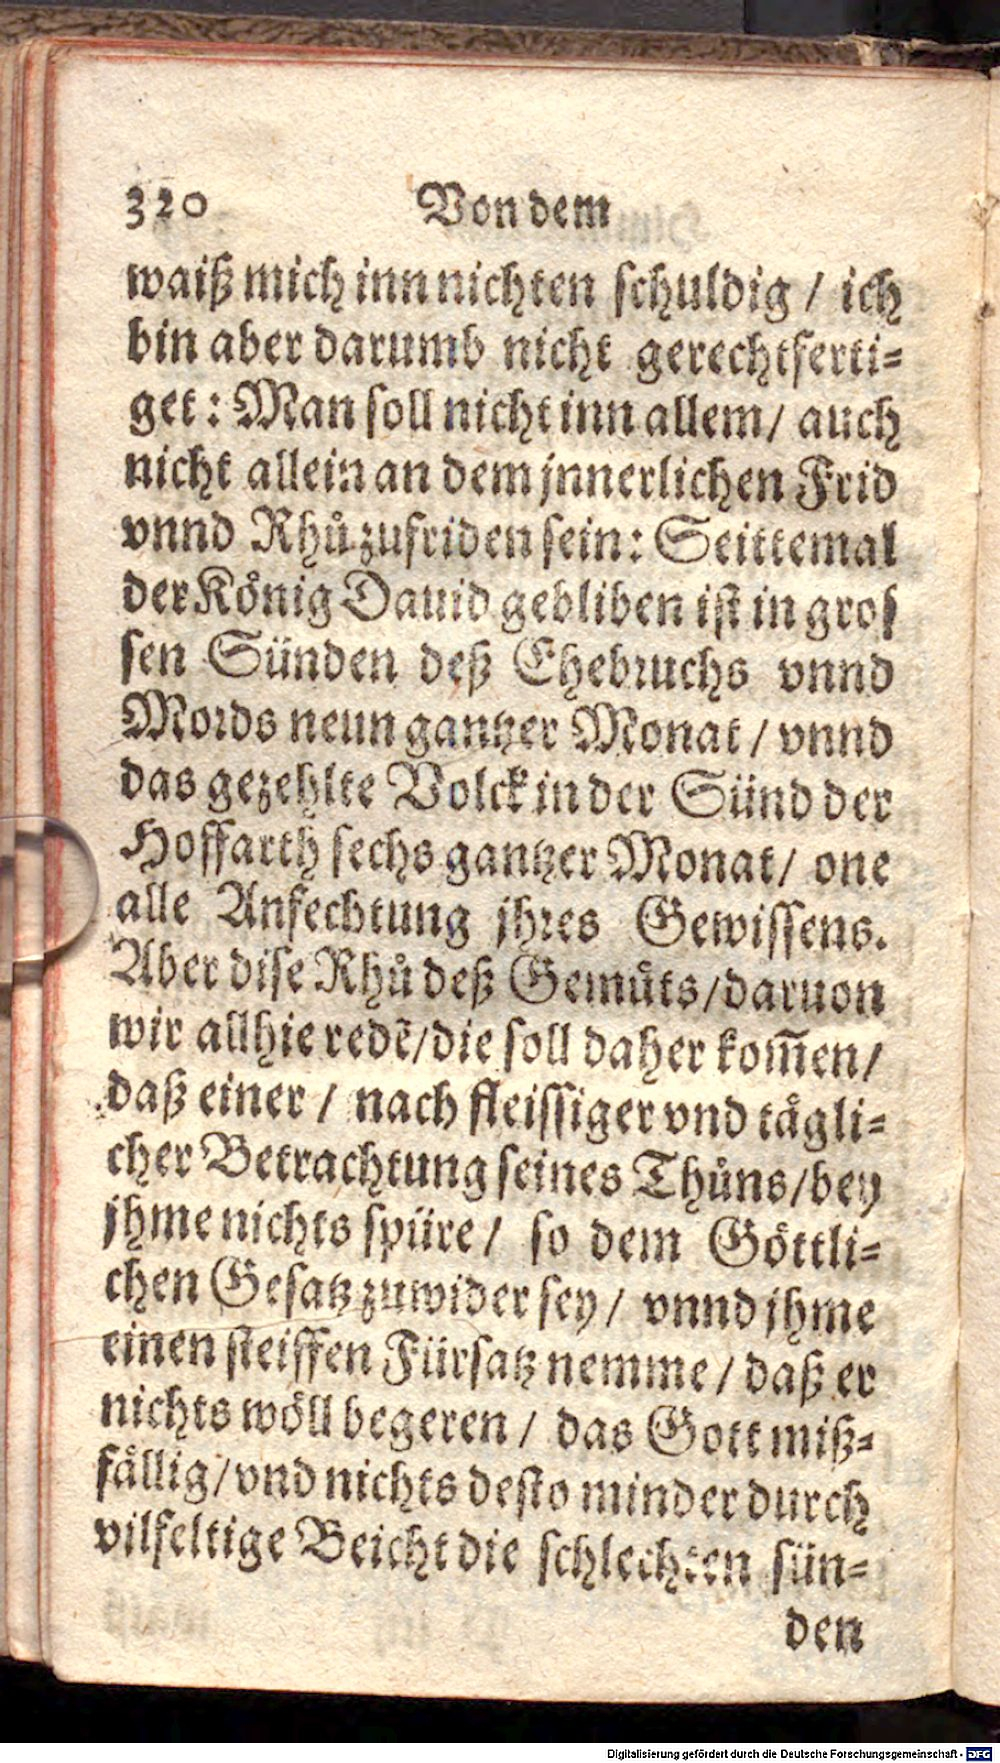 320 Von dem
waiß mich inn nichten schuldig / ich
bin aber darumb nicht gerechtferti⸗
get : Man soll nicht inn allem / auch
nicht allein an dem jnnerlichen Frid
vnnd Rhů zufriden sein : Seittemal
der König Dauid gebliben ist in gros
sen Sünden deß Ehebruchs vnnd
Mords neun gantzer Monat / vnnd
das gezehlte Volck in der Sünd der
Hoffarth sechs gantzer Monat / one
alle Anfechtung jhres Gewissens.
Aber dise Rhů deß Gemüts / daruon
wir allhie redẽ / die soll daher kom̃en /
daß einer / nach fleissiger vnd tägli⸗
cher Betrachtung seines Thůns / bey
jhme nichts spüre / so dem Göttli⸗
chen Gesatz zuwider sey / vnnd jhme
einen steiffen Fürsatz nemme / daß er
nichts wöll begeren / das Gott miß⸗
fällig / vnd nichts desto minder durch
vilfeltige Beicht die schlechten sün⸗
den
Digitalisierung gefördert durch die Deutsche Forschungsgemeinschaft - DFG